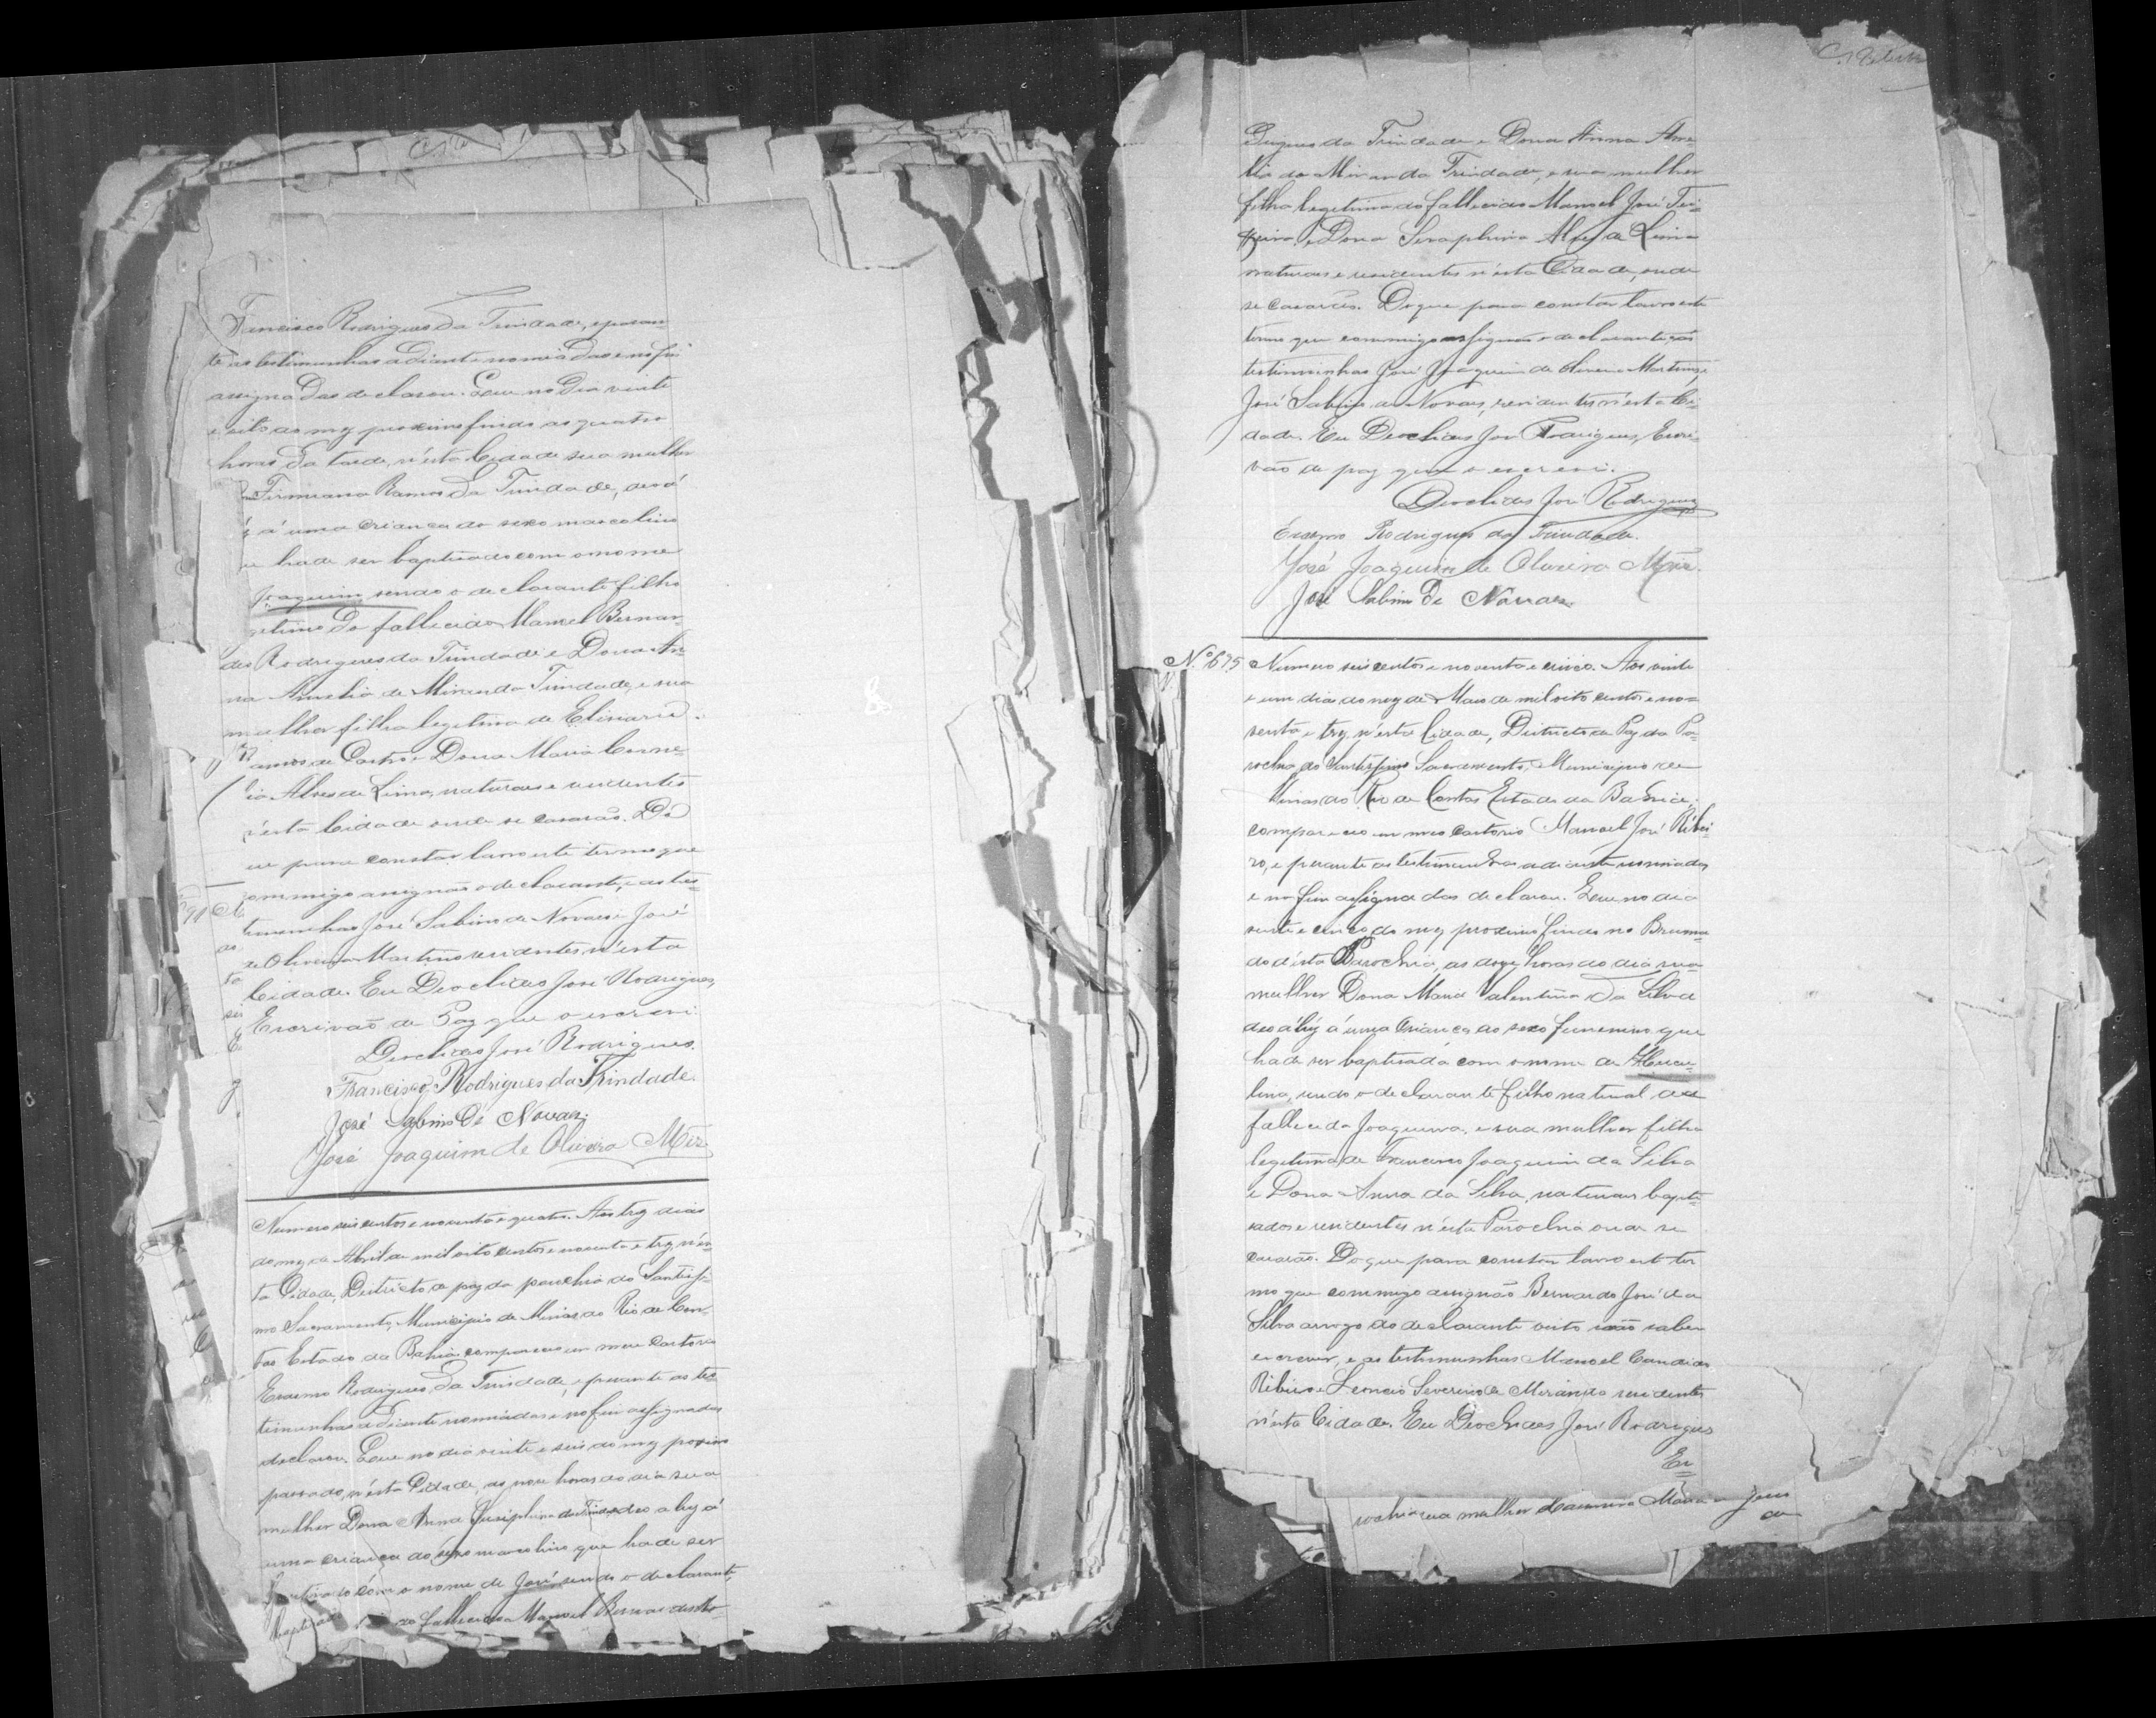 Francisco Rodrigues da Trindade, e peran-
te as testimunhas adiante nomiadas e no fim
assignadas declarou. Que no dia vinte
e oito do mez proximo findo as quatro
horas da tarde, n'esta Cidade sua mulher
Firmiana Ramos da Trindade, deo á
á uma criança do sexo mascolino
hade ser baptisado com o nome
Joaquim sendo o declarante filho
gitimo do fallecido Manoel Bernar-
des Rodrigues da Trindade e Dona An-
na Amelia de Miranda Trindade, e sua
mulher filha legitima de Elisiario
Ramos de Castro e Dona Maria Corne-
ia Alves de Lima, naturaes e residentes
n'esta Cidade onde se casarão. Do
ue para constar lavro este termo que
ommigo assignão o declarante, e as tes-
timunhas José Sabino de Novaes e José
de Oliveira Martins residentes n'esta
Cidade. Eu Deoclides José Rodrigues,
Escrivão de Paz que o escrevi.
Deoclides José Rodrigues.
Francisco Rodrigues da Trindade.
José Sabino de Novaes.
José Joaquim de Oliveira Miz
Numero seis centos e noventa e quatro. Aos trez dias
do mez de Abril de mil oito centos e noventa e trez, n'es-
ta Cidade, Districto de paz da parochia do Santissi-
mo Sacramento, Municipio de Minas do Rio de Con-
tas Estado da Bahia compareceo em meu Cartorio
Erasmo Rodrigues da Trindade, e perante as tes-
timunhas adiante nomiadas e no fim assignadas
declarou. Que no dia vinte e seis do mez proximo
passado, n'esta Cidade, as nove horas do dia sua
mulher Dona Anna Josephina da Trindade deo a luz á
uma criança do sexo mascolino que hade ser
baptisado com o nome de José sendo o declarante,
do fallecido Manoel Bernardes Ro-
drigues da Trindade e Dona Anna Ame-
lia de Miranda Trindade, e sua mulher
filha legitima do fallecido Manoel José Tei-
xeira, e Dona Seraphina Alves de Lima
naturaes e residentes n'esta Cidade, onde
se casarão. Do que para constar lavro este
termo que commigo assignão o declarante e as
testimunhas José Joaquim de Oliveira Martins, e
José Sabino de Novaes, residentes n'esta Ci-
dade. Eu Deoclides José Rodrigues, Escri-
vão de paz que o escrevi.
Deoclides José Rodrigues
Erasmo Rodrigues da Trindade.
José Joaquim de Oliveira Miz.
José Sabino de Novaes.
N.º 695 Numero seis centos e noventa e cinco. Aos vinte
e um dias do mez de Maio de mil oito centos e no-
venta e trez, n'esta Cidade, Districto de Paz da Pa-
rochia do Santissimo Sacramento, Municipio de
Minas do Rio de Contas Estado da Bahia,
compareceo em meo Cartorio Manoel José Ribei-
ro, e perante as testimunhas adiante nomiadas
e no fim assignadas declarou. Que no dia
vinte e cinco do mez proximo findo no Bruma-
do d'esta Parochia, as doze horas do dia sua
mulher Dona Maria Valentina da Silva
deo á luz á uma criança do sexo femenino que
hade ser baptisada com o nome de Hercu-
lina, sendo o declarante filho natural da
fallecida Joaquina, e sua mulher filha
legitima de Francisco Joaquim da Silva
e Dona Anna da Silva, naturaes bapti-
sados e residentes n'esta Parochia onde se
casarão. Do que para constar lavro este ter-
mo que commigo assignão Bernardo José da
Silva arrogo do declarante visto não saber
escrever, e as testimunhas Manoel Candido
Ribeiro e Leoncio Severino de Miranda residentes
n'esta Cidade. Eu Deoclides José Rodrigues
Es
rochia sua mulher Maria de Jesus